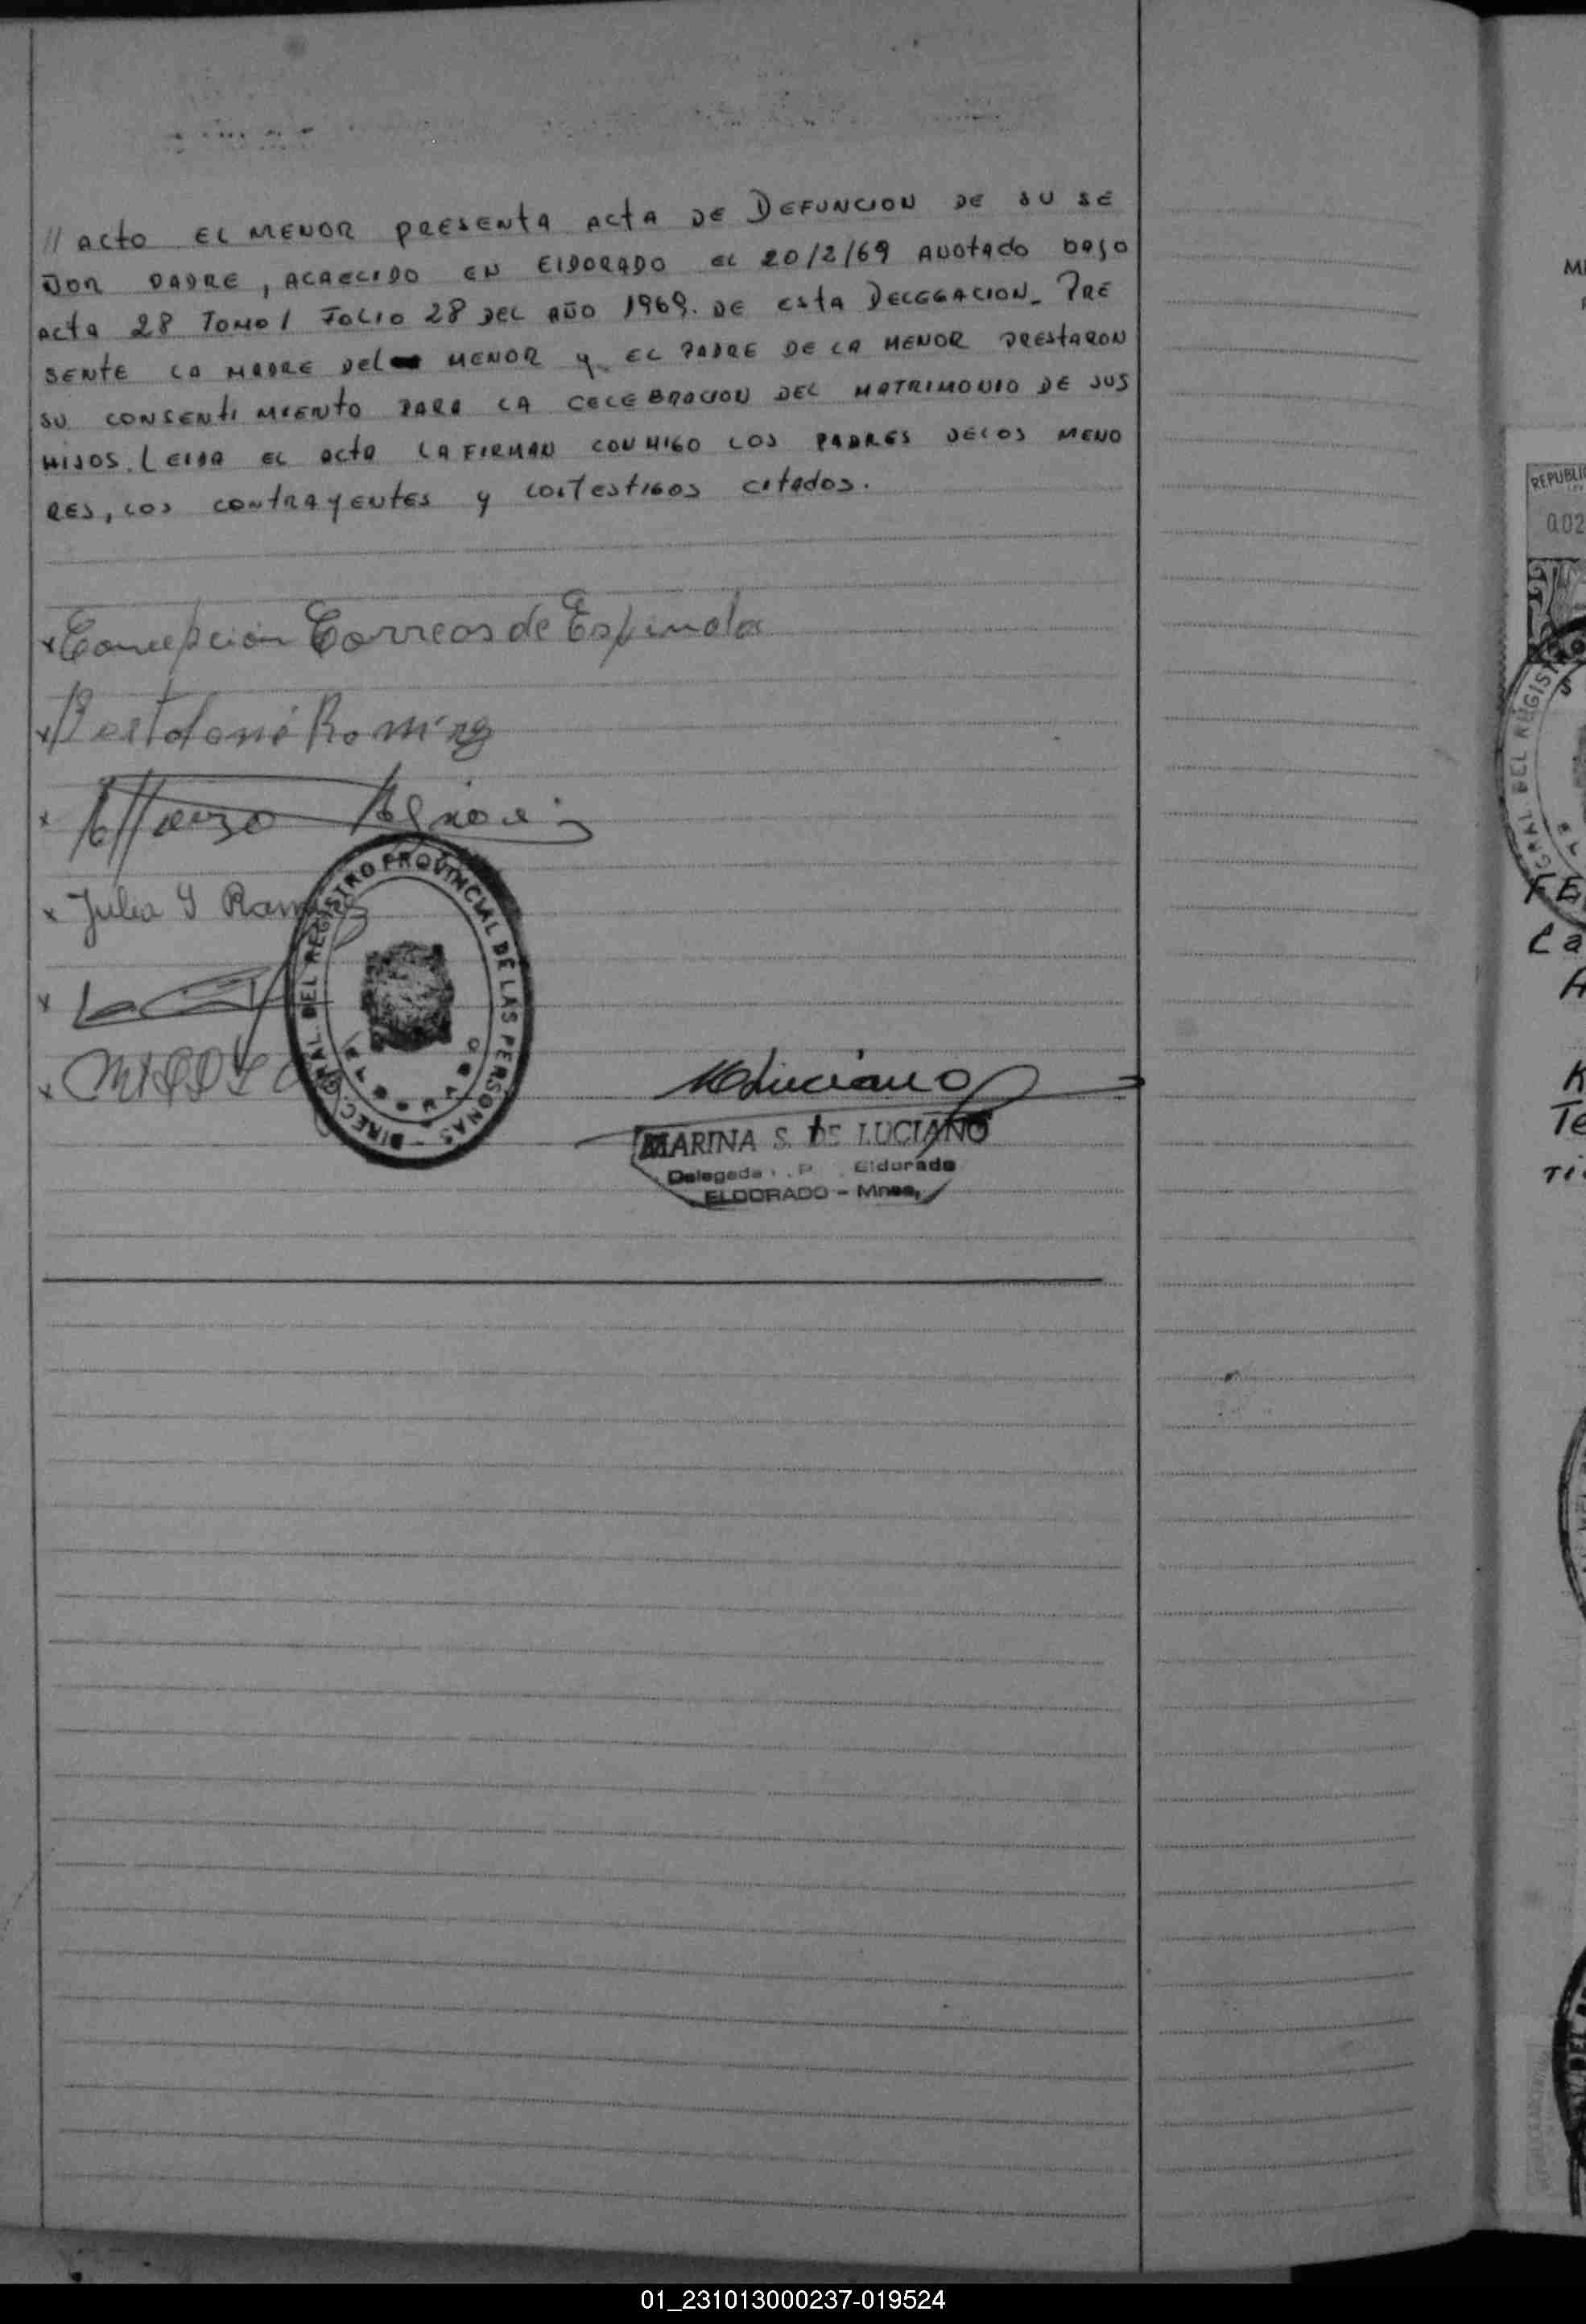 // acto EL MENOR PRESENTA ACTA DE DEFUNCION DE SU SE
ÑOR PADRE, ACAECIDO EN ELDORADO EL 20/2/69 ANOTADO BAJO
ACTA 28 TOMO 1 FOLIO 28 DEL AÑO 1969. DE ESTA DELEGACION_ PRE
SENTE LA MADRE DEL MENOR y EL PADRE DE LA MENOR PRESTARON
SU CONSENTIMIENTO PARA LA CELEBRACION DEL MATRIMONIO DE SUS
HIJOS. LEIDA EL ACTA LA FIRMAN CONMIGO LOS PADRES DE LOS MENO
RES, LOS CONTRAYENTES y LOS TESTIGOS CITADOS.
x Concepción Correas de Espinola
x
x
x Julia Y Ram
x
x
DIREC. GRAL. DEL REGISTRO PROVINCIAL DE LAS PERSONAS
MLuciano
MARINA S. DE LUCIANO
Delegada Eldorado
ELDORADO - Mnes.
REPUBLI
0.02
GRAL DEL REGIS
FE
La
A
K
Te
01_231013000237-019524